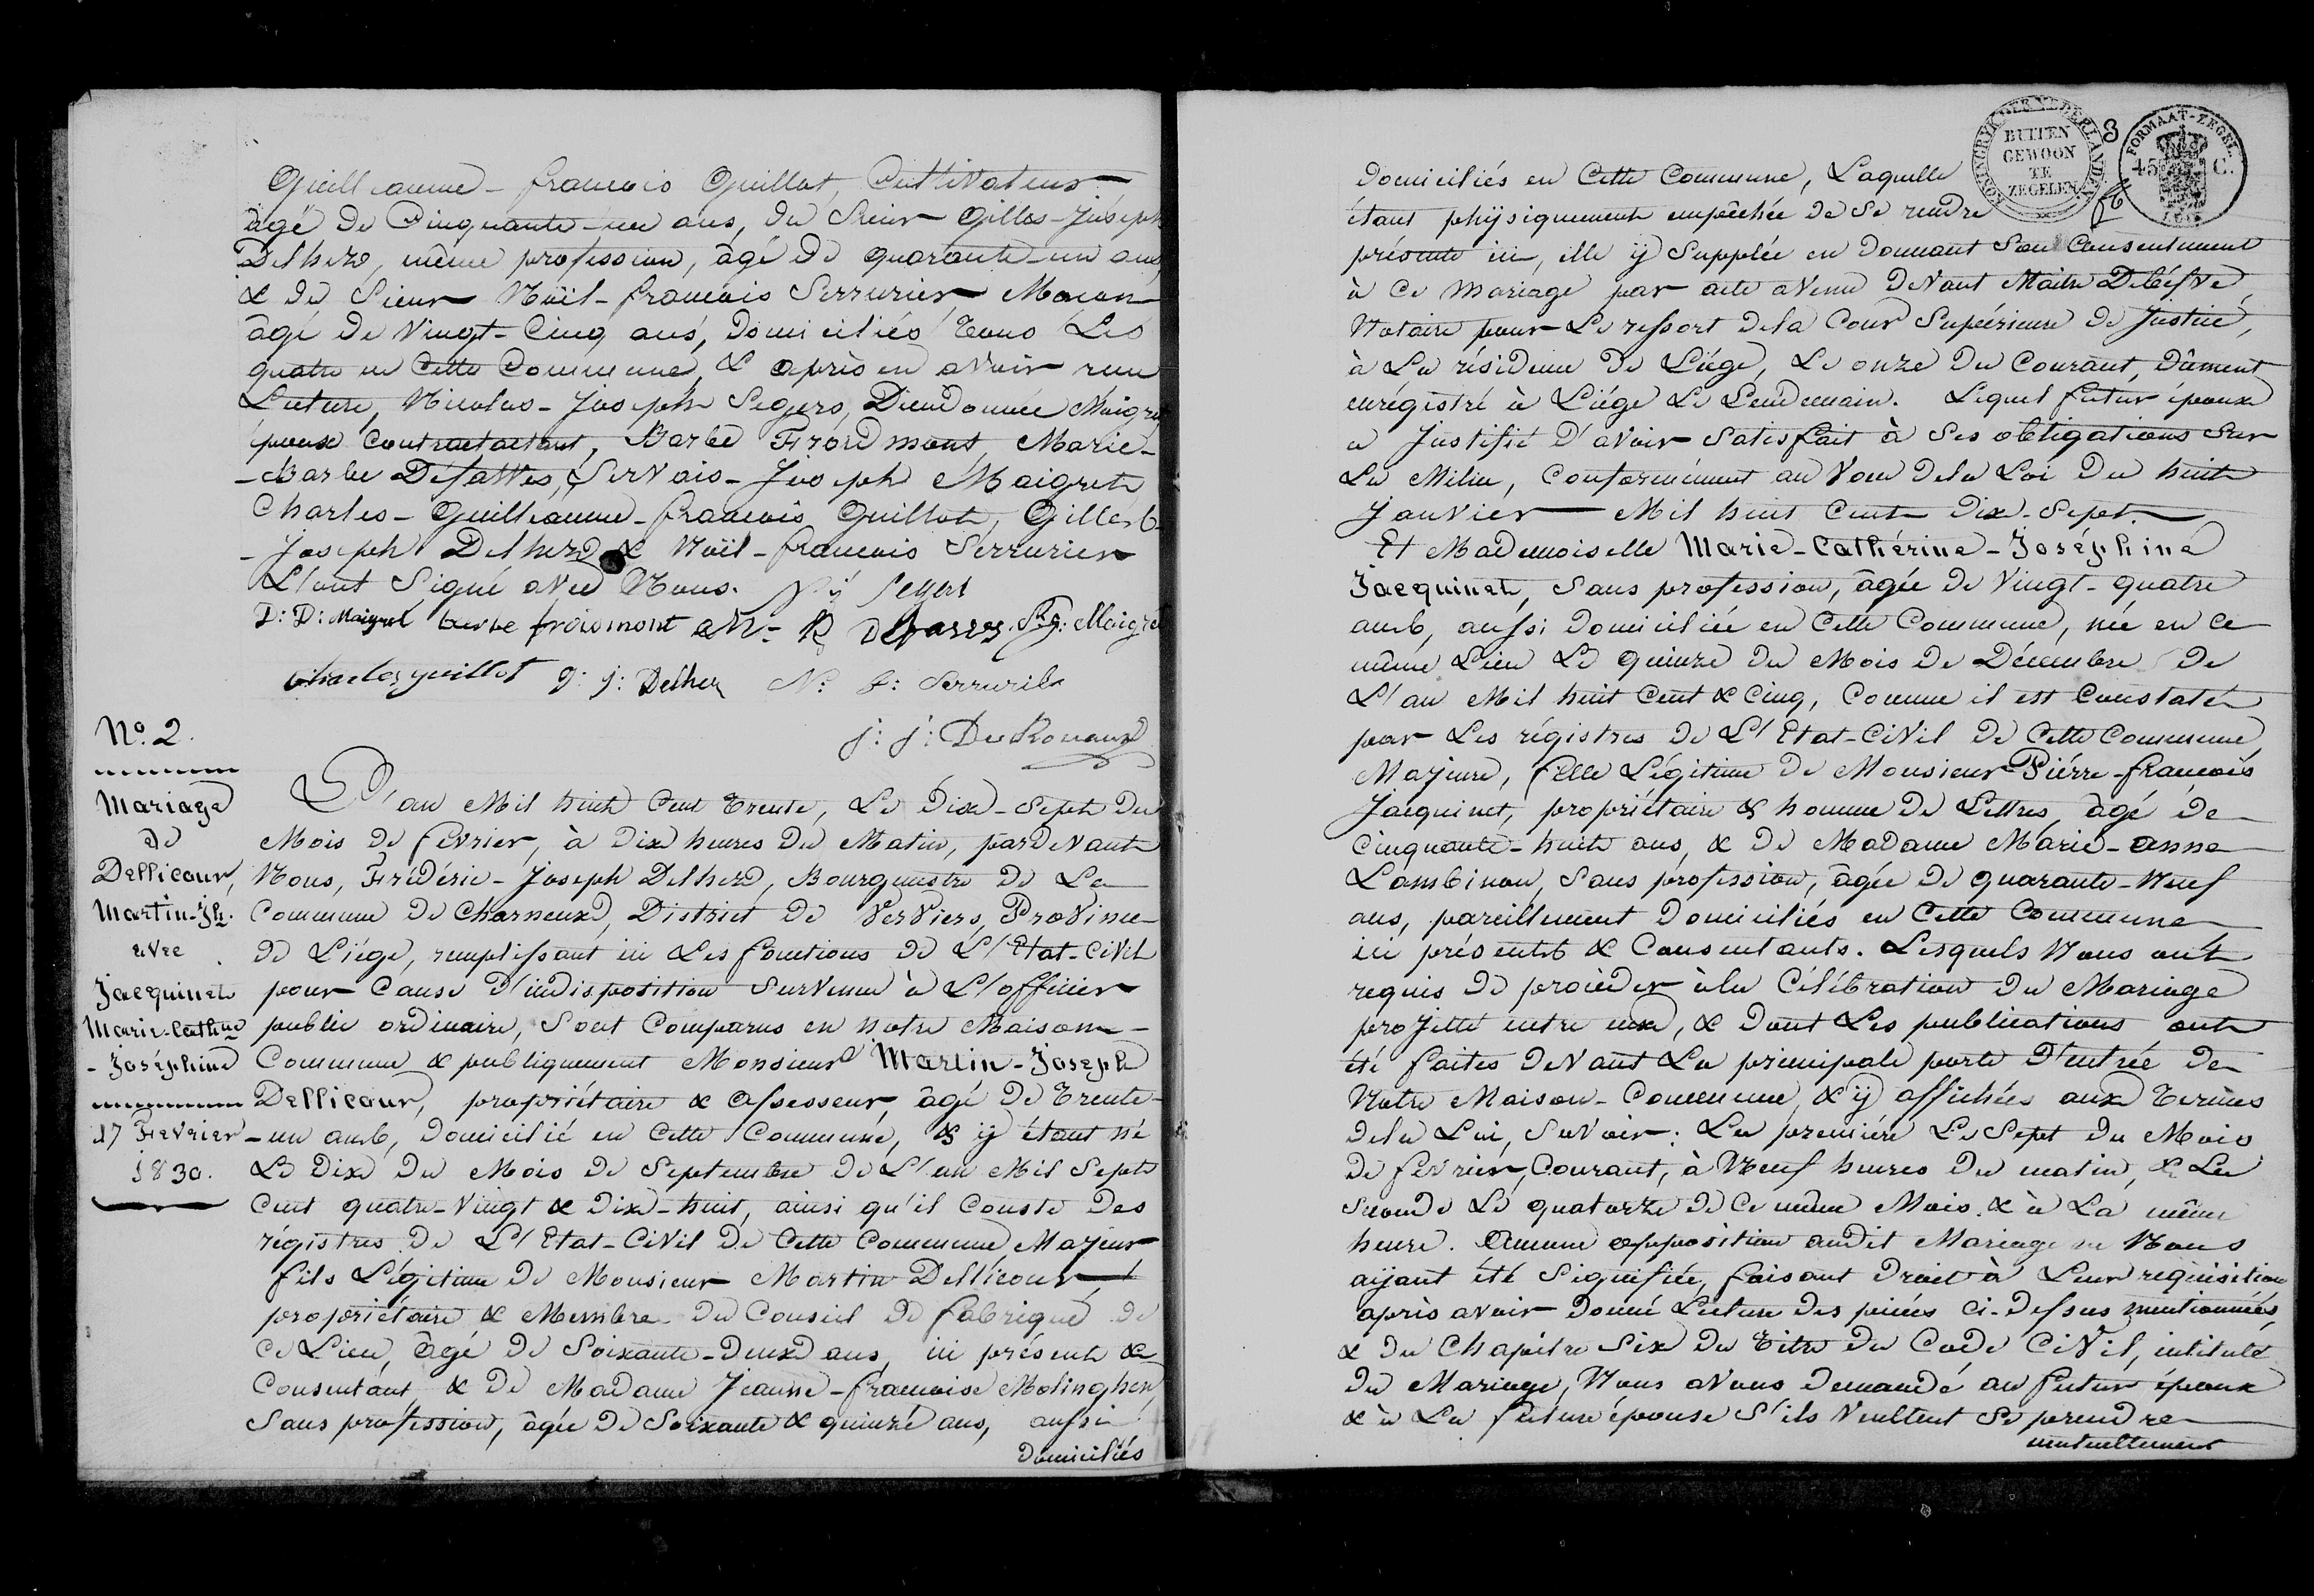 Guilleaume-francois Guillot, Cultivateur
âgé de Cinquante-un ans, du Sieur Gilles-Joseph
Delhez, même profession, âgé de quarante-un ans,
& du Sieur Noël-francois Serrurier Macon
âgé de Vingt-Cinq ans, domiciliés tous Les
quatre en Cette Commune, & après en avoir reçu
Lecture, Nicolas-Joseph Segers, Dieudonnée Maigret
époux Contractactant, Barbe Froidmont, Marie-
-Barbe Defawes, Servais-Joseph Maigret
Charles-Guilleaume-francois Guillot, Gilles
-Joseph Delhez & Noël-francois Serrurier
L'ont Signé avec Nous. N j Segers
D: D: Maigret barbe froidmont M- B Defawes S: J: Maigret
Charles guillot g: j: Delhez N: f: Serrurier
j: j: DeRouaux
N°. 2.
Mariage
de
Dellicour,
Martin-Jh.
avec
Jacquinet
Marie-Cathne
-Joséphine
17 Fevrier
1830.
L'an Mil huit Cent trente, Le Dix-Sept du
Mois de fevrier, à Dix heures du Matin, pardevant
Nous, Fréderic-Joseph Delhez, Bourgmestre de La
Commune de Charneux, District de Verviers, Province
de Liége, remplissant ici Les fonctions de L'Etat-Civil
pour Cause d'indisposition Survenue à L'officier
public ordinaire, Sont Comparus en notre Maison-
Commune & publiquement Monsieur Martin-Joseph
Dellicour, propriétaire & Assesseur, âgé de trente-
-un ans, domicilié en Cette Commune, & ÿ étant né
Le Dix du Mois de Septembre de L'an Mil Sept
Cent quatre-Vingt & Dix-huit, ainsi qu'il Conste des
régistres de L'Etat-Civil de Cette Commune, Majeur
fils Légitime de Monsieur Martin Dellicour,
propriétaire & Membre du Conseil de fabrique de
Ce Lieu, âgé de Soixante-Deux ans, ici présent &
Consentant & de Madame Jeanne-francoise Molinghen
Sans profession, âgée de Soixante & quinze ans, aussi
Domiciliés
KONINGRYK DER NEDERLANDEN
BUITEN
GEWOON
TE
ZEGELEN
8
FORMAAT-ZEGEL
45 C.
domiciliés en Cette Commune, Laquelle
étant phÿsiquement empêchée de Se rendre
présente ici, elle ÿ Supplée en donnant Son Consentement
à Ce mariage par acte avenu devant Maître Delefve
Notaire pour Le ressort dela Cour Supérieure de Justice,
à La résidence de Liége, Le onze du Courant, dûment
enrégistré à Liége Le Lendemain. Lequel futur époux
a Justifié d'avoir Satisfait à Ses obligations Sur
La Milice, Conformément au Voeu dela Loi du huit
Janvier Mil huit Cent Dix-Sept.
Et Mademoiselle Marie-Cathérine-Joséphine
Jacquinet, Sans profession, âgée de Vingt-quatre
ans, aussi domiciliée en Cette Commune, née en Ce
même Lieu Le quinze du Mois de Décembre de
L'an Mil huit Cent & Cinq, Comme il est Constaté
par Les régistres de L'Etat-Civil de Cette Commune,
Majeure, fille Légitime de Monsieur Piérre-francois
Jacquinet, propriétaire & homme de Lettres, âgé de
Cinquante-huit ans, & de Madame Marie-anne
Lambinon, Sans profession, âgée de quarante-Neuf
ans, pareillement domiciliés en Cette Commune,
ici présents & Consentants. Lesquels Nous ont
requis de procéder àla Célébration du Mariage
projetté entre eux, & dont Les publications ont
été faites devant La principale porte d'entrée de
Notre Maison-Commune, & ÿ affichées aux termes
dela Loi, Savoir: La première Le Sept du Mois
de fevrier, Courant, à Neuf heures du matin, & La
Seconde Le quatorze de Ce même Mois & à La même
heure. Aucune opposition audit Mariage ne Nous
aÿant été Signifiée, faisant Droit à Leur requisition
après avoir donné Lecture des piéces ci-dessus mentionnées,
& du Chapitre Six du titre du Code Civil, intitulé
du Mariage, Nous avons demandé au futur époux
& à La future épouse S'ils Veullent Se prendre
mutuellement